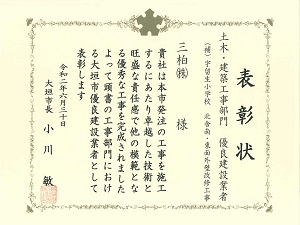 表彰状
土木・建築工事部門　優良建設業者
(補)宇留生小学校　北舎南・東面外壁改修工事
三柏㈱　様
貴社は本市発注の工事を施工
するにあたり卓越した技術と
旺盛な責任感で他の模範とな
る優秀な工事を完成されました
よって頭書の工事部門におけ
る大垣市優良建設業者として
表彰します
令和二年六月三十日
大垣市長　小川　敏